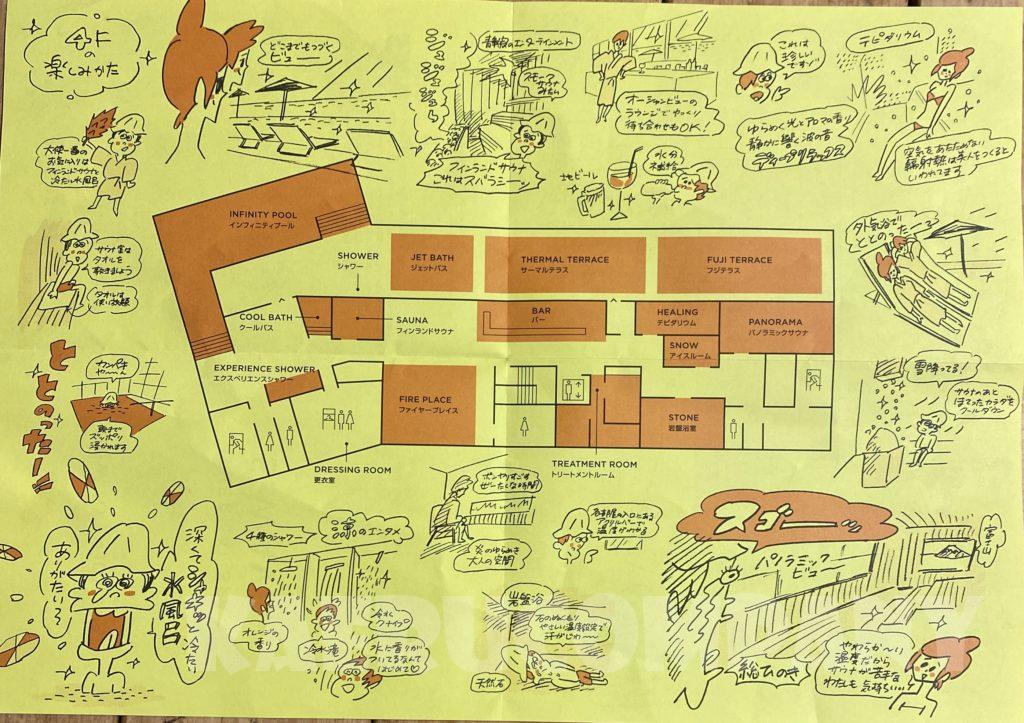 4F
の
楽しみかた
どこまでもつづく
ビュー
静寂のエンターテインメント
フィンランドサウナ
これはスバラシーン
オーシャンビューの
ラウンジでゆっくり
待ち合わせもOK!
地ビール
水分
補給
これは
珍しい
ですゾ
テピダリウム
ゆらめく光とアロマの香り
静かに響く波の音
空気をあたためない
輻射熱は美人をつくると
いわれてます
大使一番の
お気に入りは
フィンランドサウナと
冷たい水風呂
サウナ室は
タオルを
敷きましょう
タオルは
使い放題
ととのったー!!
頭まで
ズッポリ
浸かれます
INFINITY POOL
インフィニティプール
SHOWER
シャワー
JET BATH
ジェットバス
THERMAL TERRACE
サーマルテラス
FUJI TERRACE
フジテラス
COOL BATH
クールバス
SAUNA
フィンランドサウナ
BAR
バー
HEALING
テピダリウム
PANORAMA
パノラミックサウナ
SNOW
アイスルーム
EXPERIENCE SHOWER
エクスペリエンスシャワー
FIRE PLACE
ファイヤープレイス
STONE
岩盤浴室
DRESSING ROOM
更衣室
TREATMENT ROOM
トリートメントルーム
外気浴で
ととのったー
雪降ってる!
サウナのあと
ほてったカラダを
クールダウン
深くて
冷たい
水風呂
ありがたいっ
4種のシャワー
涼のエンタメ
オレンジの
香り
冷水滝
水に香りが
ついてるなんて
はじめて♡
ボンヤリすごす
ぜいたくな時間
炎のゆらめき
大人の空間
岩盤浴
石のぬくもり
やさしい温度設定で
汗がじわ〜
天然石
スゴーッ
パノラミック
ビュー
富士山
総ひのき
やわらか〜い
温度だから
サウナが苦手な
わたしも気持ちいい